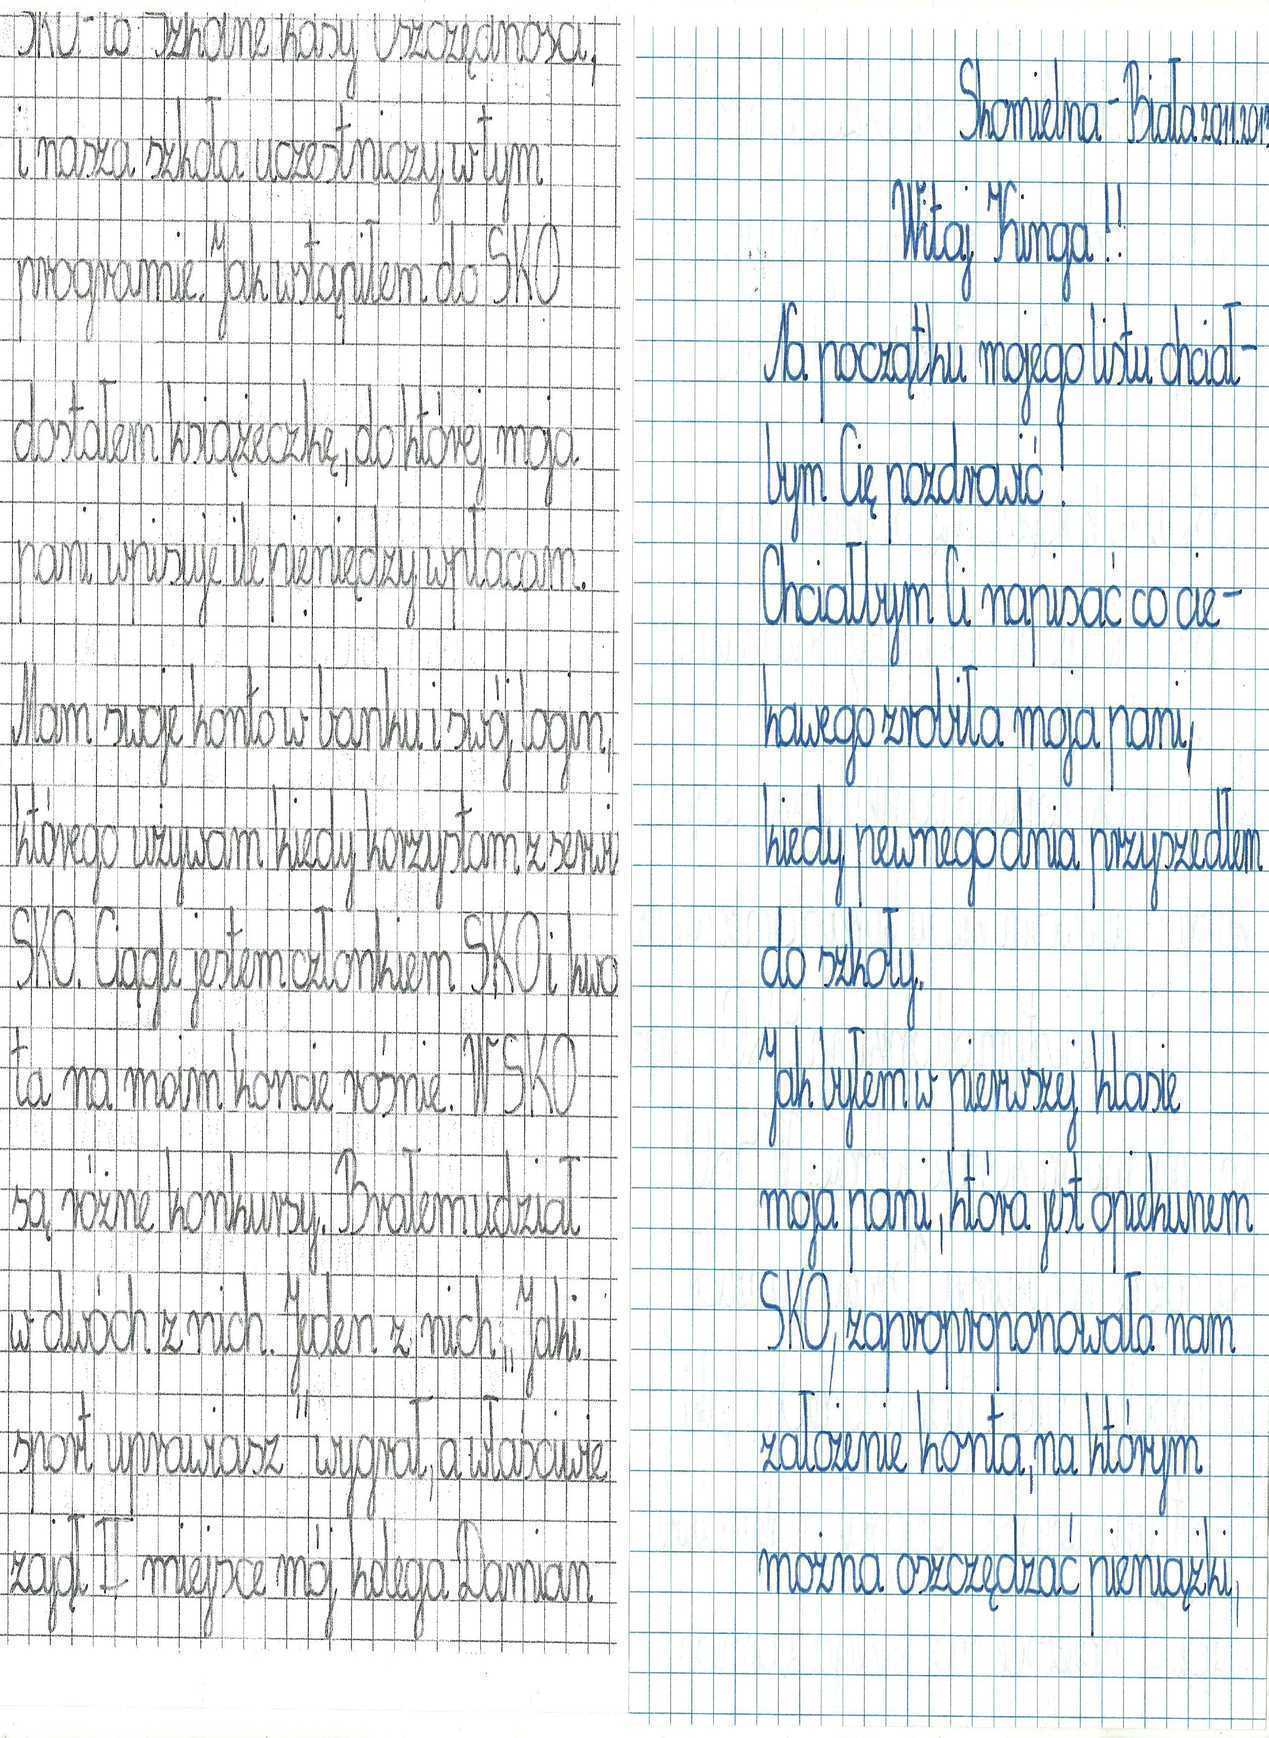 Skomielna - Biała 20.11.201
Witaj Kinga!!
Na początku mojego listu chciał-
bym Cię pozdrowić!
Chciałbym Ci napisać co cie-
kawego zrobiła moja pani,
kiedy pewnego dnia przyszedłem
do szkoły.
Jak byłem w pierwszej klasie
moja pani, która jest opiekunem
SKO, zapropronowała nam
założenie konta, na którym
można oszczędzać pieniążki,
SKO - to Szkolne Kasy Oszczędności,
i nasza szkoła uczestniczy w tym
programie. Jak wstąpiłem do SKO
dostałem książeczkę, do której moja
pani wpisuje ile pieniędzy wpłacam.
Mam swoje konto w banku i swój login,
którego używam kiedy korzystam z serwi
SKO. Ciągle jestem członkiem SKO i kwo
ta na moim koncie rośnie. W SKO
są różne konkursy. Brałem udział
w dwóch z nich. Jeden z nich „Jaki
sport uprawiasz" wygrał, a właściwie
zajął II miejsce mój kolega Damian